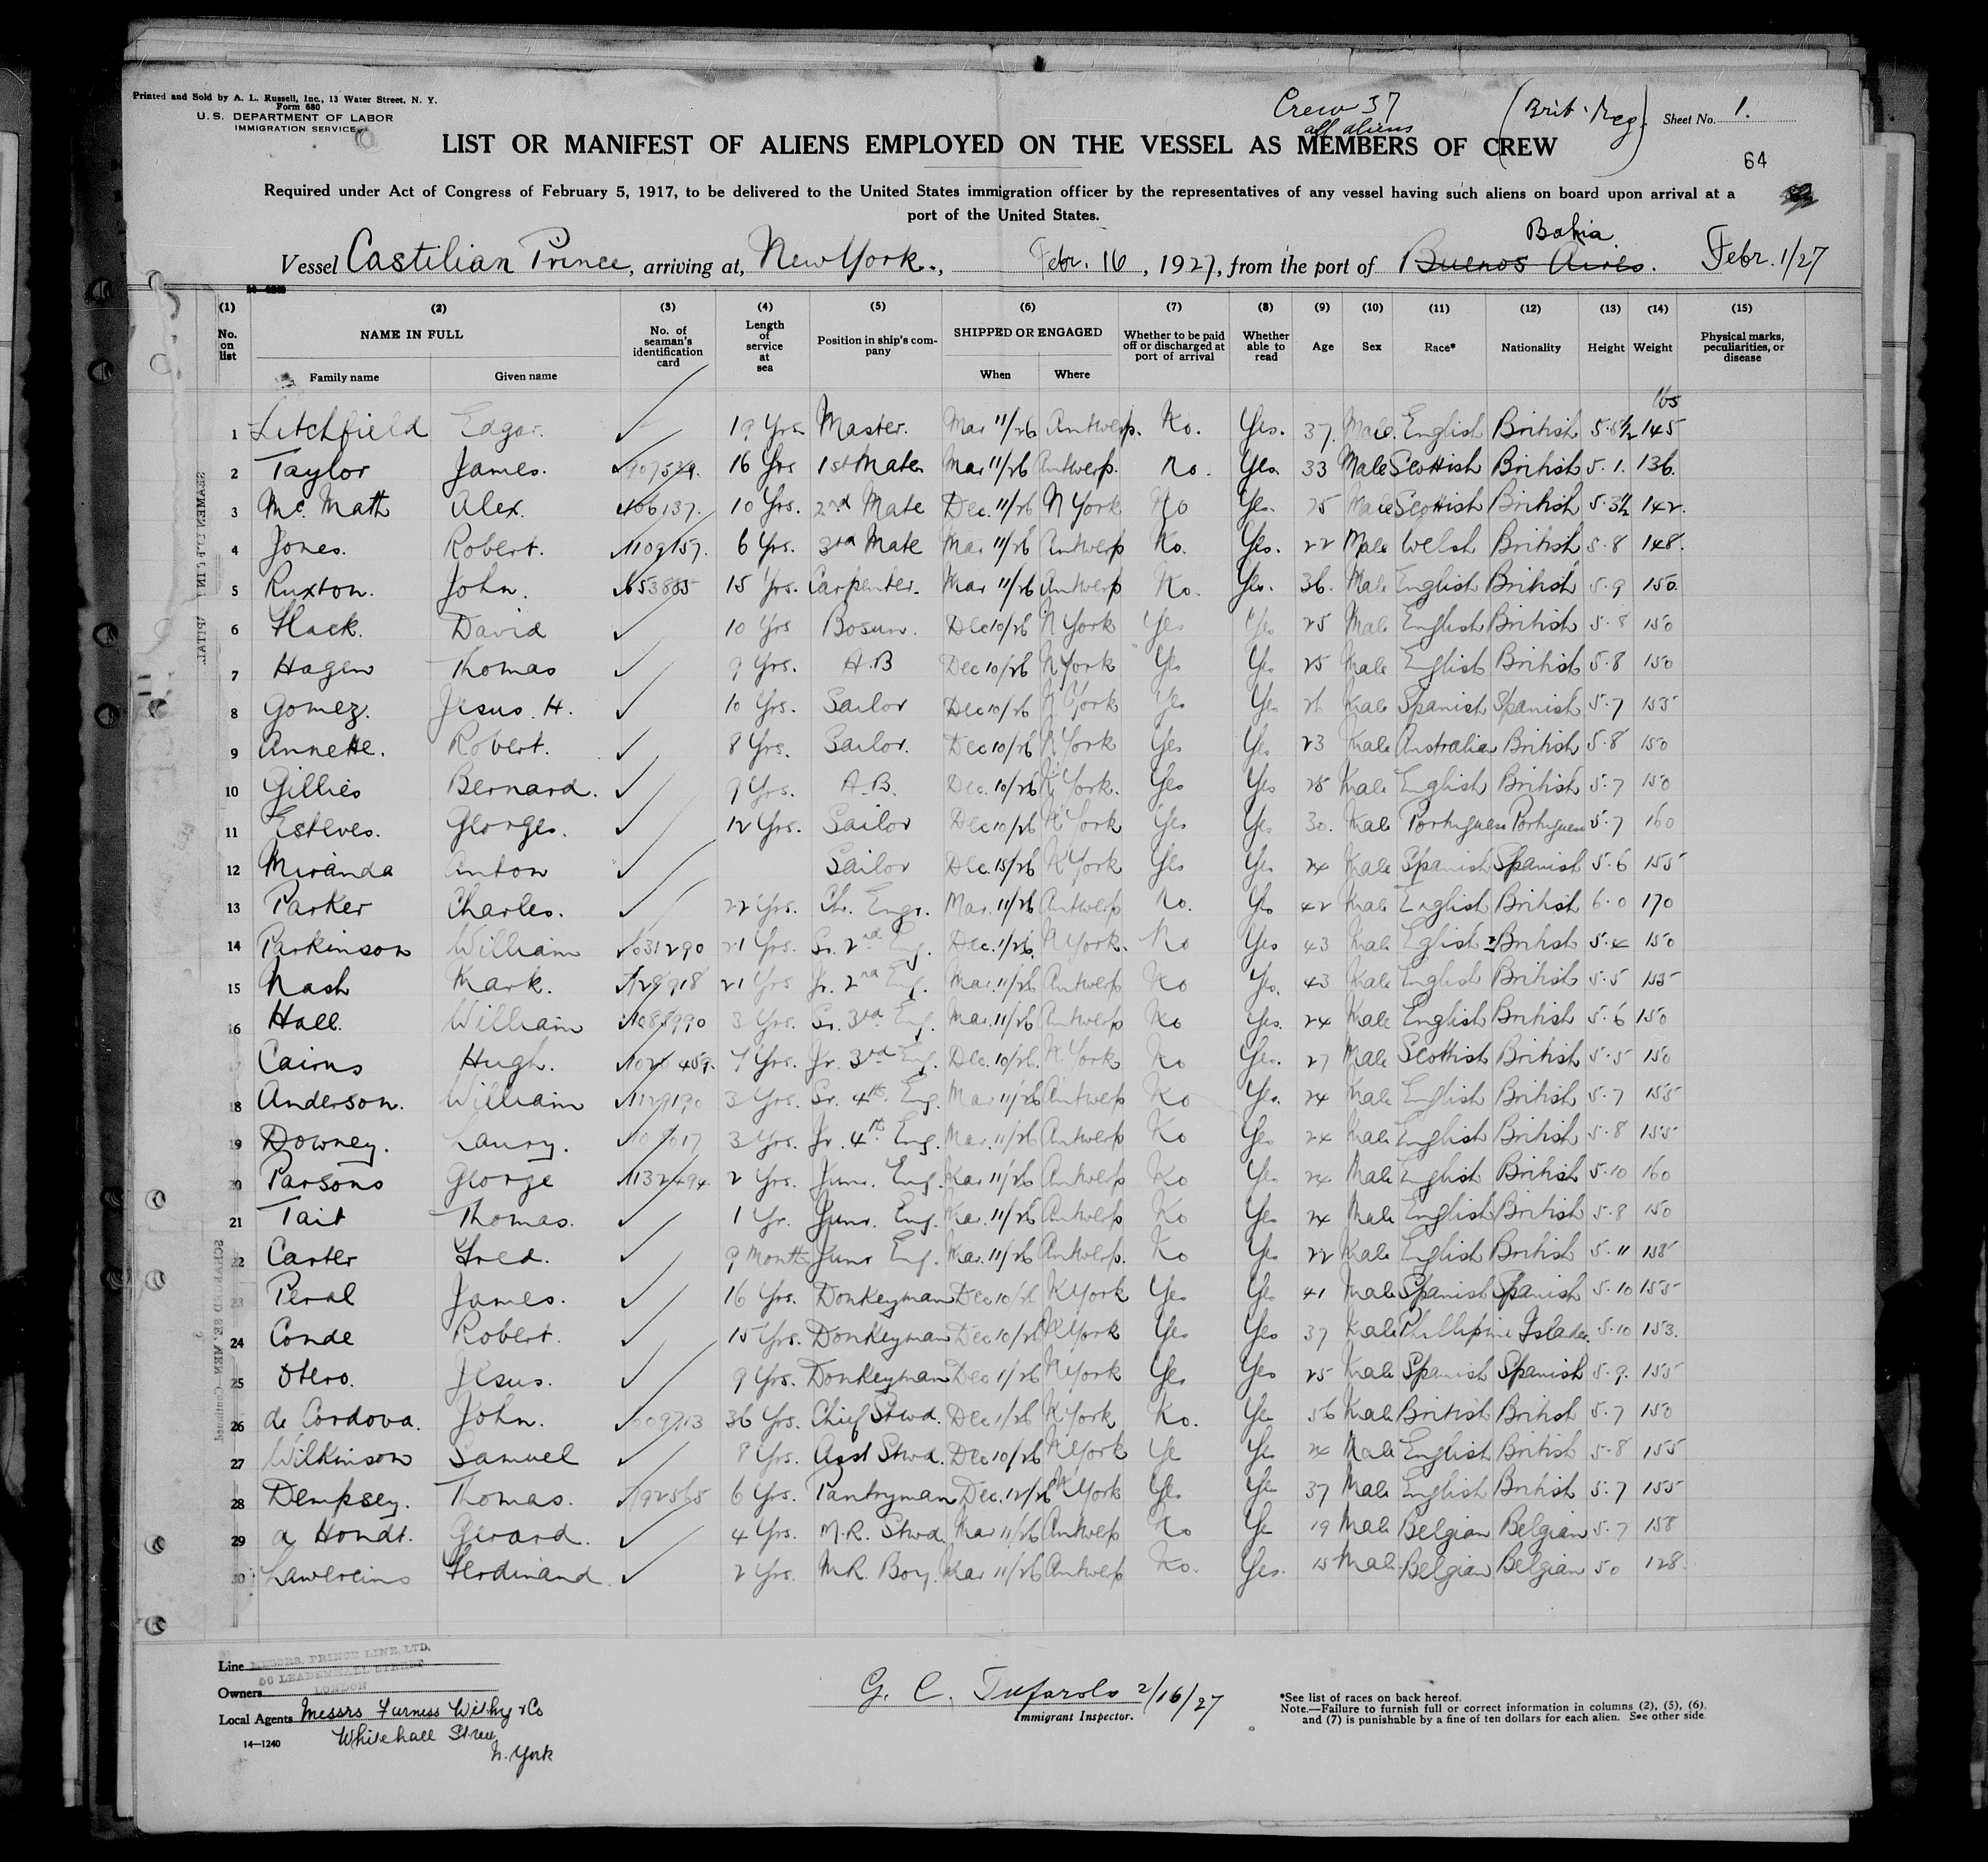 Printed and Sold by A. L. Russell, Inc., 13 Water Street, N. Y.
Form 680
U. S. DEPARTMENT OF LABOR
IMMIGRATION SERVICE
Crew 37
all aliens
(Brit. Reg.)
Sheet No. 1.
LIST OR MANIFEST OF ALIENS EMPLOYED ON THE VESSEL AS MEMBERS OF CREW
64
Required under Act of Congress of February 5, 1917, to be delivered to the United States immigration officer by the representatives of any vessel having such aliens on board upon arrival at a
port of the United States.
Bahia
Vessel Castilian Prince, arriving at, New York., Febr. 16, 1927, from the port of Buenos Aires. Febr. 1/27
(1) (2) (3) (4) (5) (6) (7) (8) (9) (10) (11) (12) (13) (14) (15)
No. on list NAME IN FULL Family name Given name No. of seaman's identification card Length of service at sea Position in ship's company SHIPPED OR ENGAGED When Where Whether to be paid off or discharged at port of arrival Whether able to read Age Sex Race* Nationality Height Weight Physical marks, peculiarities, or disease
lbs
1 Litchfield Edgar. 19 Yrs Master. Mar 11/26 Antwerp. No. Yes. 37. Male. English British 5.8½ 145
2 Taylor James. 16 Yrs 1st Mate Mar 11/26 Antwerp. No. Yes. 33 Male Scottish British 5.1. 136.
3 Mc. Math Alex. 10 Yrs. 2nd Mate Dec. 11/26 N York No Yes. 25 Male Scottish British 5.3½ 142.
4 Jones. Robert. 1109157. 6 Yrs. 3rd Mate Mar 11/26 Antwerp No. Yes. 22 Male Welsh British 5.8 148.
5 Ruxton. John. 15 Yrs. Carpenter. Mar 11/26 Antwerp No. Yes. 36. Male English British 5.9 150.
6 Flack. David 10 Yrs Bosun. Dec 10/26 N York Yes Yes 25 Male English British 5.8 150
7 Hagen Thomas 9 Yrs. A.B Dec 10/26 N York Yes Yes 25 Male English British 5.8 150
8 Gomez. Jesus. H. 10 Yrs. Sailor Dec 10/26 N York Yes Yes 26 Male Spanish Spanish 5.7 155
9 Annette. Robert. 8 Yrs. Sailor. Dec 10/26 N York Yes Yes 23 Male Australian British 5.8 150
10 Gillies Bernard. 9 Yrs. A.B. Dec. 10/26 N York. Yes Yes 25 Male English British 5.7 150
11 Esteves. Georges. 12 Yrs. Sailor Dec 10/26 N York Yes Yes 30. Male Portuguese Portuguese 5.7 160
12 Miranda Anton Sailor Dec. 15/26 N York Yes Yes 24 Male Spanish Spanish 5.6 155
13 Parker Charles. 22 Yrs. Ch. Engr. Mar. 11/26 Antwerp No. Yes 42 Male English British 6.0 170
14 Parkinson William 1031290 21 Yrs. Sr. 2nd Eng. Dec. 1/26. N York. No Yes 43 Male Eglish British 5.4 150
15 Nash Mark. 21 Yrs Jr. 2nd Eng. Mar. 11/26 Antwerp No Yes. 43 Male English British 5.5 155
16 Hall. William 3 Yrs. Sr. 3rd Eng. Mar. 11/26 Antwerp No Yes. 24 Male English British 5.6 150
Cairns Hugh. 7 Yrs. Jr. 3rd Eng. Dec. 10/26. N York No Yes. 27 Male Scottish British 5.5 150
18 Anderson. William 1129190 3 Yrs. Sr. 4th. Eng. Mar 11/26 Antwerp No Yes. 24 Male English British 5.7 155
19 Downey. Laury. 3 Yrs. Jr. 4th. Eng. Mar. 11/26 Antwerp No Yes 24 Male English British 5.8 155
20 Parsons George 1132494 2 Yrs. Junr. Eng. Mar 11/26 Antwerp No Yes 24 Male English British 5.10 160
21 Tait Thomas. 1 Yr. Junr. Eng. Mar. 11/26 Antwerp No Yes 24 Male English British 5.8 150
22 Carter Fred. 9 Months Junr Eng. Mar. 11/26 Antwerp. No Yes 22 Male English British 5.11 158
23 Peral James. 16 Yrs. Donkeyman Dec 10/26 N York Yes Yes 41 Male Spanish Spanish 5.10 155
24 Conde Robert. 15 Yrs. Donkeyman Dec 10/26 N York Yes Yes 37 Male Phillipine Islander. 5.10 153.
25 Otero. Jesus. 9 Yrs. Donkeyman Dec 1/26 N York Yes Yes 25 Male Spanish Spanish 5.9. 155
26 de Cordova. John. 36 Yrs. Chief Stwd. Dec 1/26 N York No. Ye 56 Male British British 5.7 150
27 Wilkinson Samuel 8 Yrs. Asst Stwd. Dec 10/26 N York Ye Ye 24 Male English British 5.8 155
28 Dempsey. Thomas. 6 Yrs. Pantryman Dec. 12/26 N York Yes Ye 37 Male English British 5.7 155
29 a Hondt. Gerard. 4 Yrs. M.R. Stwd. Mar 11/26 Antwerp No Ye 19 Male Belgian Belgian 5.7 158
30 Ferdinand. 2 Yrs. M.R. Boy. Mar 11/26 Antwerp No. Yes. 15 Male Belgian Belgian 5 0 128.
Line MESSRS. PRINCE LINE, LTD.
56 LEADENHALL STREET
Owners LONDON
Local Agents Messrs Furness Withy & Co
Whitehall Street
N. York
14—1240
G. C. Tufarolo 2/16/27
Immigrant Inspector.
*See list of races on back hereof.
Note.—Failure to furnish full or correct information in columns (2), (5), (6),
and (7) is punishable by a fine of ten dollars for each alien. See other side